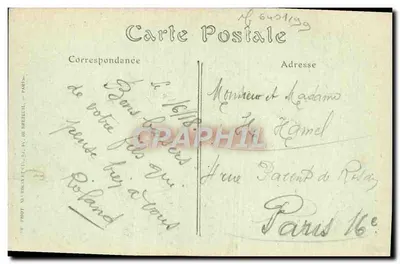 N° 6401/99
Carte Postale
Correspondance
Adresse
Le 16/18
Bons baisers
de votre fils qui
pense bien à vous
Roland
Monsieur et Madame
Hamel
4 rue Parent de Rosan
Paris 16e
CPARHIPHIL